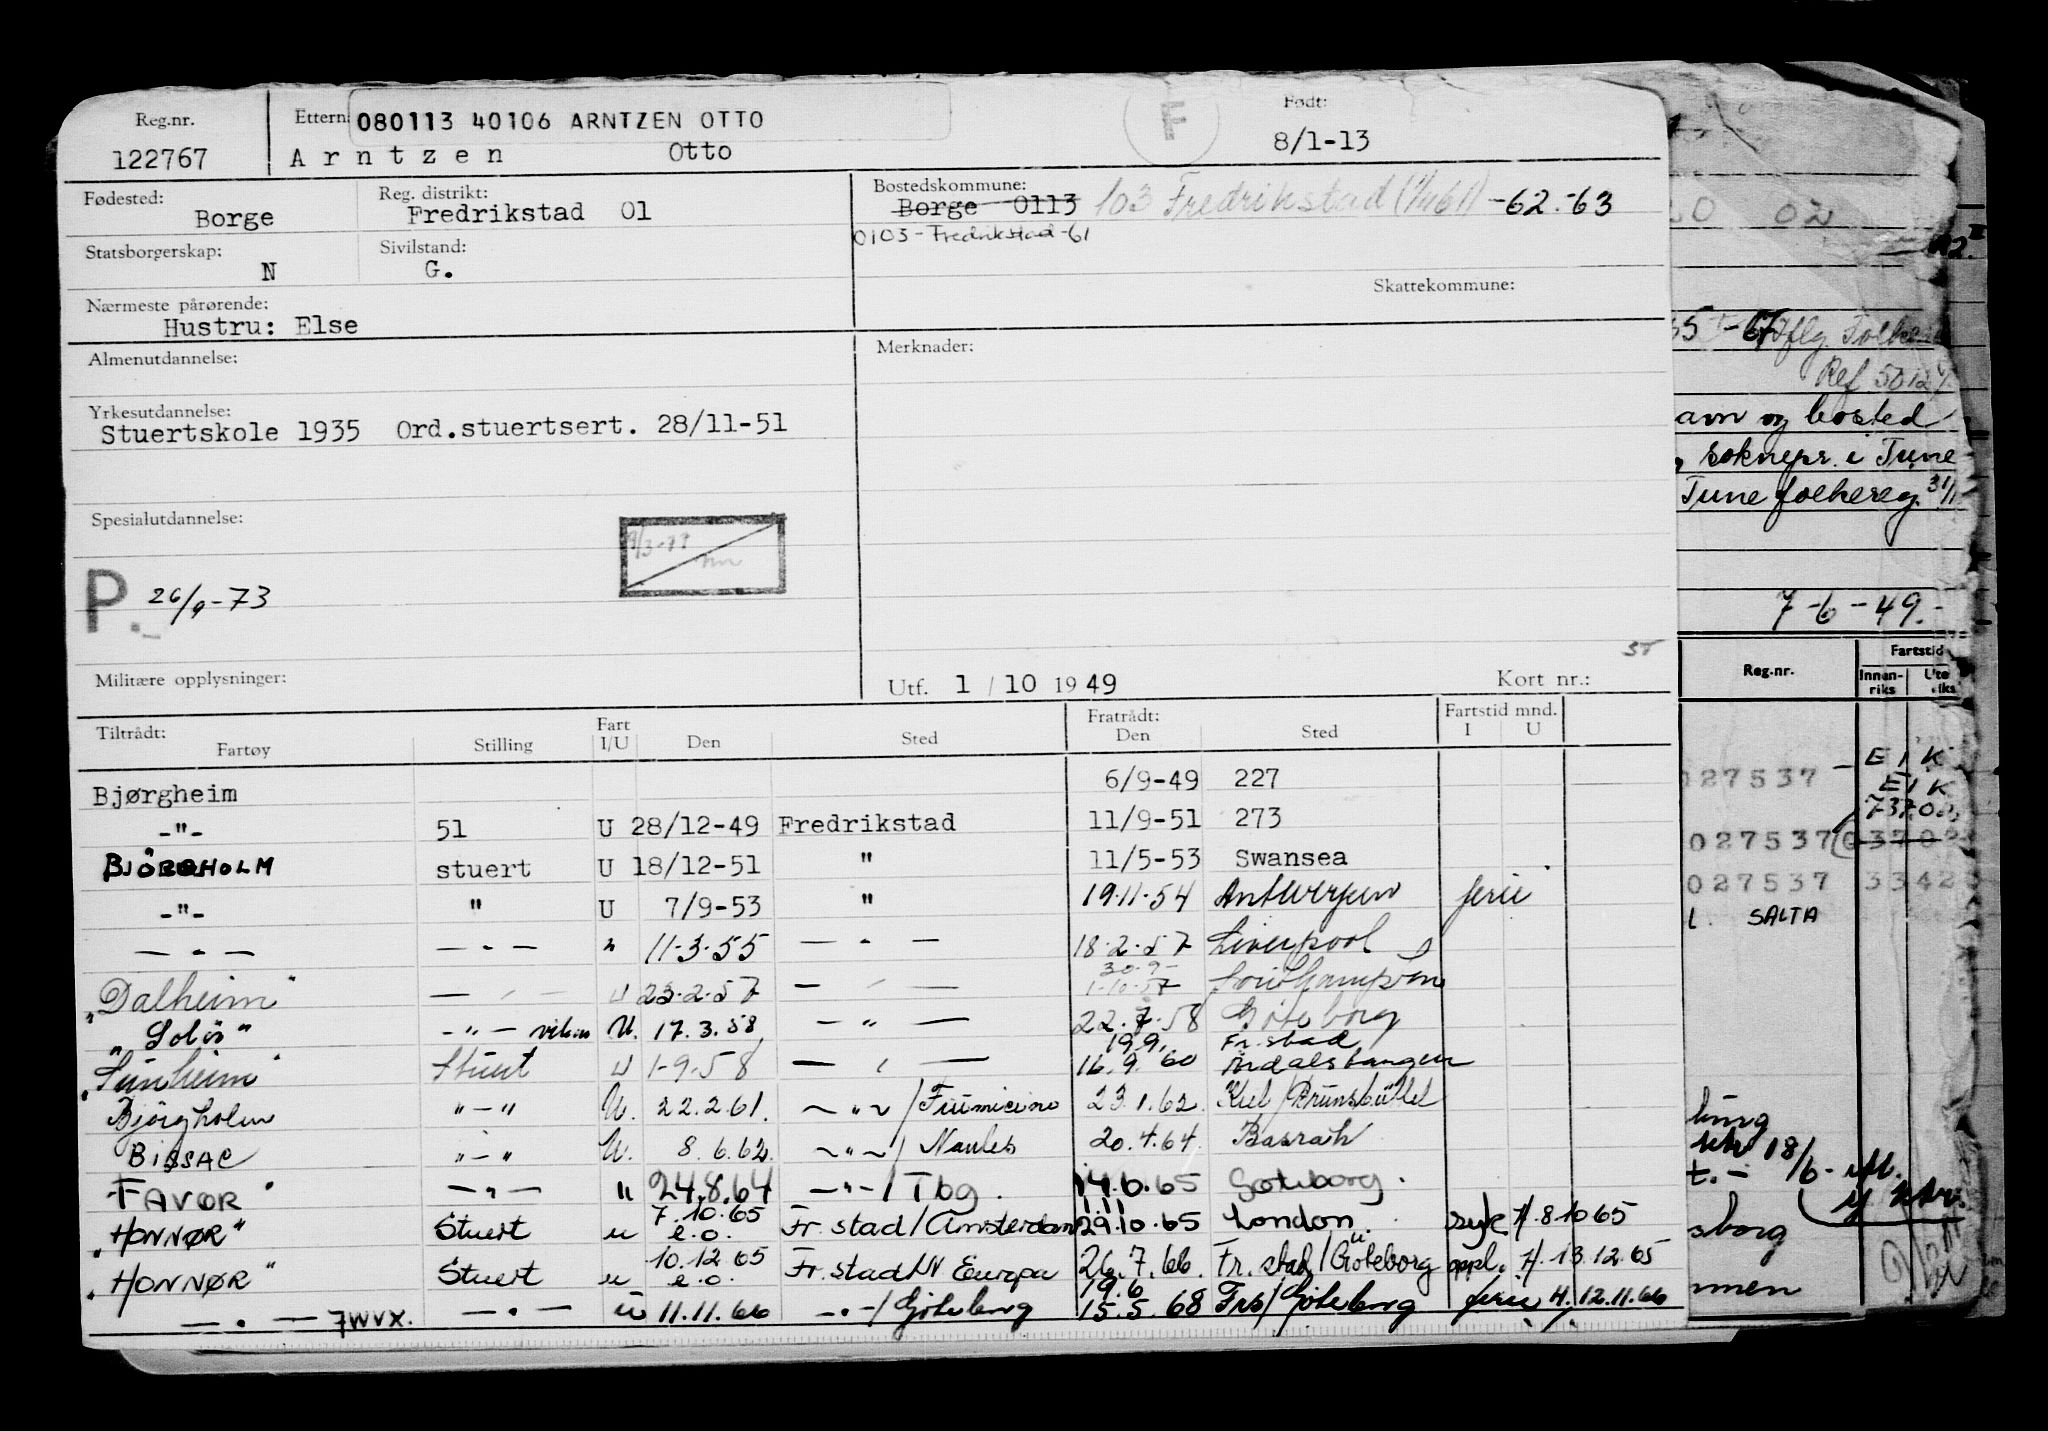 Reg.nr. Ettern. 080113 40106 ARNTZEN OTTO F Født:
122767 Arntzen Otto 8/1-13
Fødested: Reg. distrikt: Bostedskommune:
Borge Fredrikstad 01 Borge 0113 103 Fredrikstad -62-63
0103-Fredrikstad-61
Statsborgerskap: Sivilstand:
N G. Skattekommune:
Nærmeste pårørende:
Hustru: Else
Almenutdannelse: Merknader:
Yrkesutdannelse:
Stuertskole 1935 Ord.stuertsert. 28/11-51
Spesialutdannelse:
P. 26/9-73
Militære opplysninger: Utf. 1/10 1949 Kort nr.:
Tiltrådt: Fart Fratrådt: Fartstid mnd.
Fartøy Stilling I/U Den Sted Den Sted I U
Bjørgheim 6/9-49 227
-"- 51 U 28/12-49 Fredrikstad 11/9-51 273
BJÖRGHOLM stuert U 18/12-51 " 11/5-53 Swansea
-"- " U 7/9-53 " 19.11.54 Antwerpen ferie
— " — — " — " 11.3.55 — " — 18.2.57 Liverpool
30.9-
"Dalheim" — " — U 23.2.57 — " — 1-10-57
"Solös" — " — U. 17.3.58 — " — 22.7.58 Göteborg
19.9. Fr.stad
"Sunheim" Stuert U 1-9-58 — " — 16.9.60 Åndalsbangen
Bjørgholm "-" U. 22.2.61. ~"~/Fiumicino 23.1.62. Kiel/Brunsbüttel
BISSAC "-" U. 8.6.62. ~"~/Naples 20.4.64. Basrah
FAVØR" — " — " 24.8.64 — " —/Tbg. 14.6.65 Goteborg.
"HONNØR" Stuert u 7.10.65 e.o. Fr.stad/Amsterdam 29.10.65 London. syk 7/8.10 65
"HONNØR" Stuert u 10.12 65 e.o. Fr.stad/N Europa 26.7.66. Fr.stad/Göteborg oppl. 7/13.12.65
19.6
— " — 7WVX. — " — u 11.11.66 — " —/Göteborg 15.5.68 Frs/Göteborg ferie 4/12.11.66
20 02
35 -67 iflg. Folkereg
Ref 50124
avn og bosted
soknepr. i Tune
Tune folkereg. 31/1
7-6-49.-
Reg.nr. Fartstid
Innen-riks Utenriks
027537 E1K
E1K
737.02
027537 63702
027537 3342
L. SALTA
burg
18/
t. - 1/6-
sborg
men